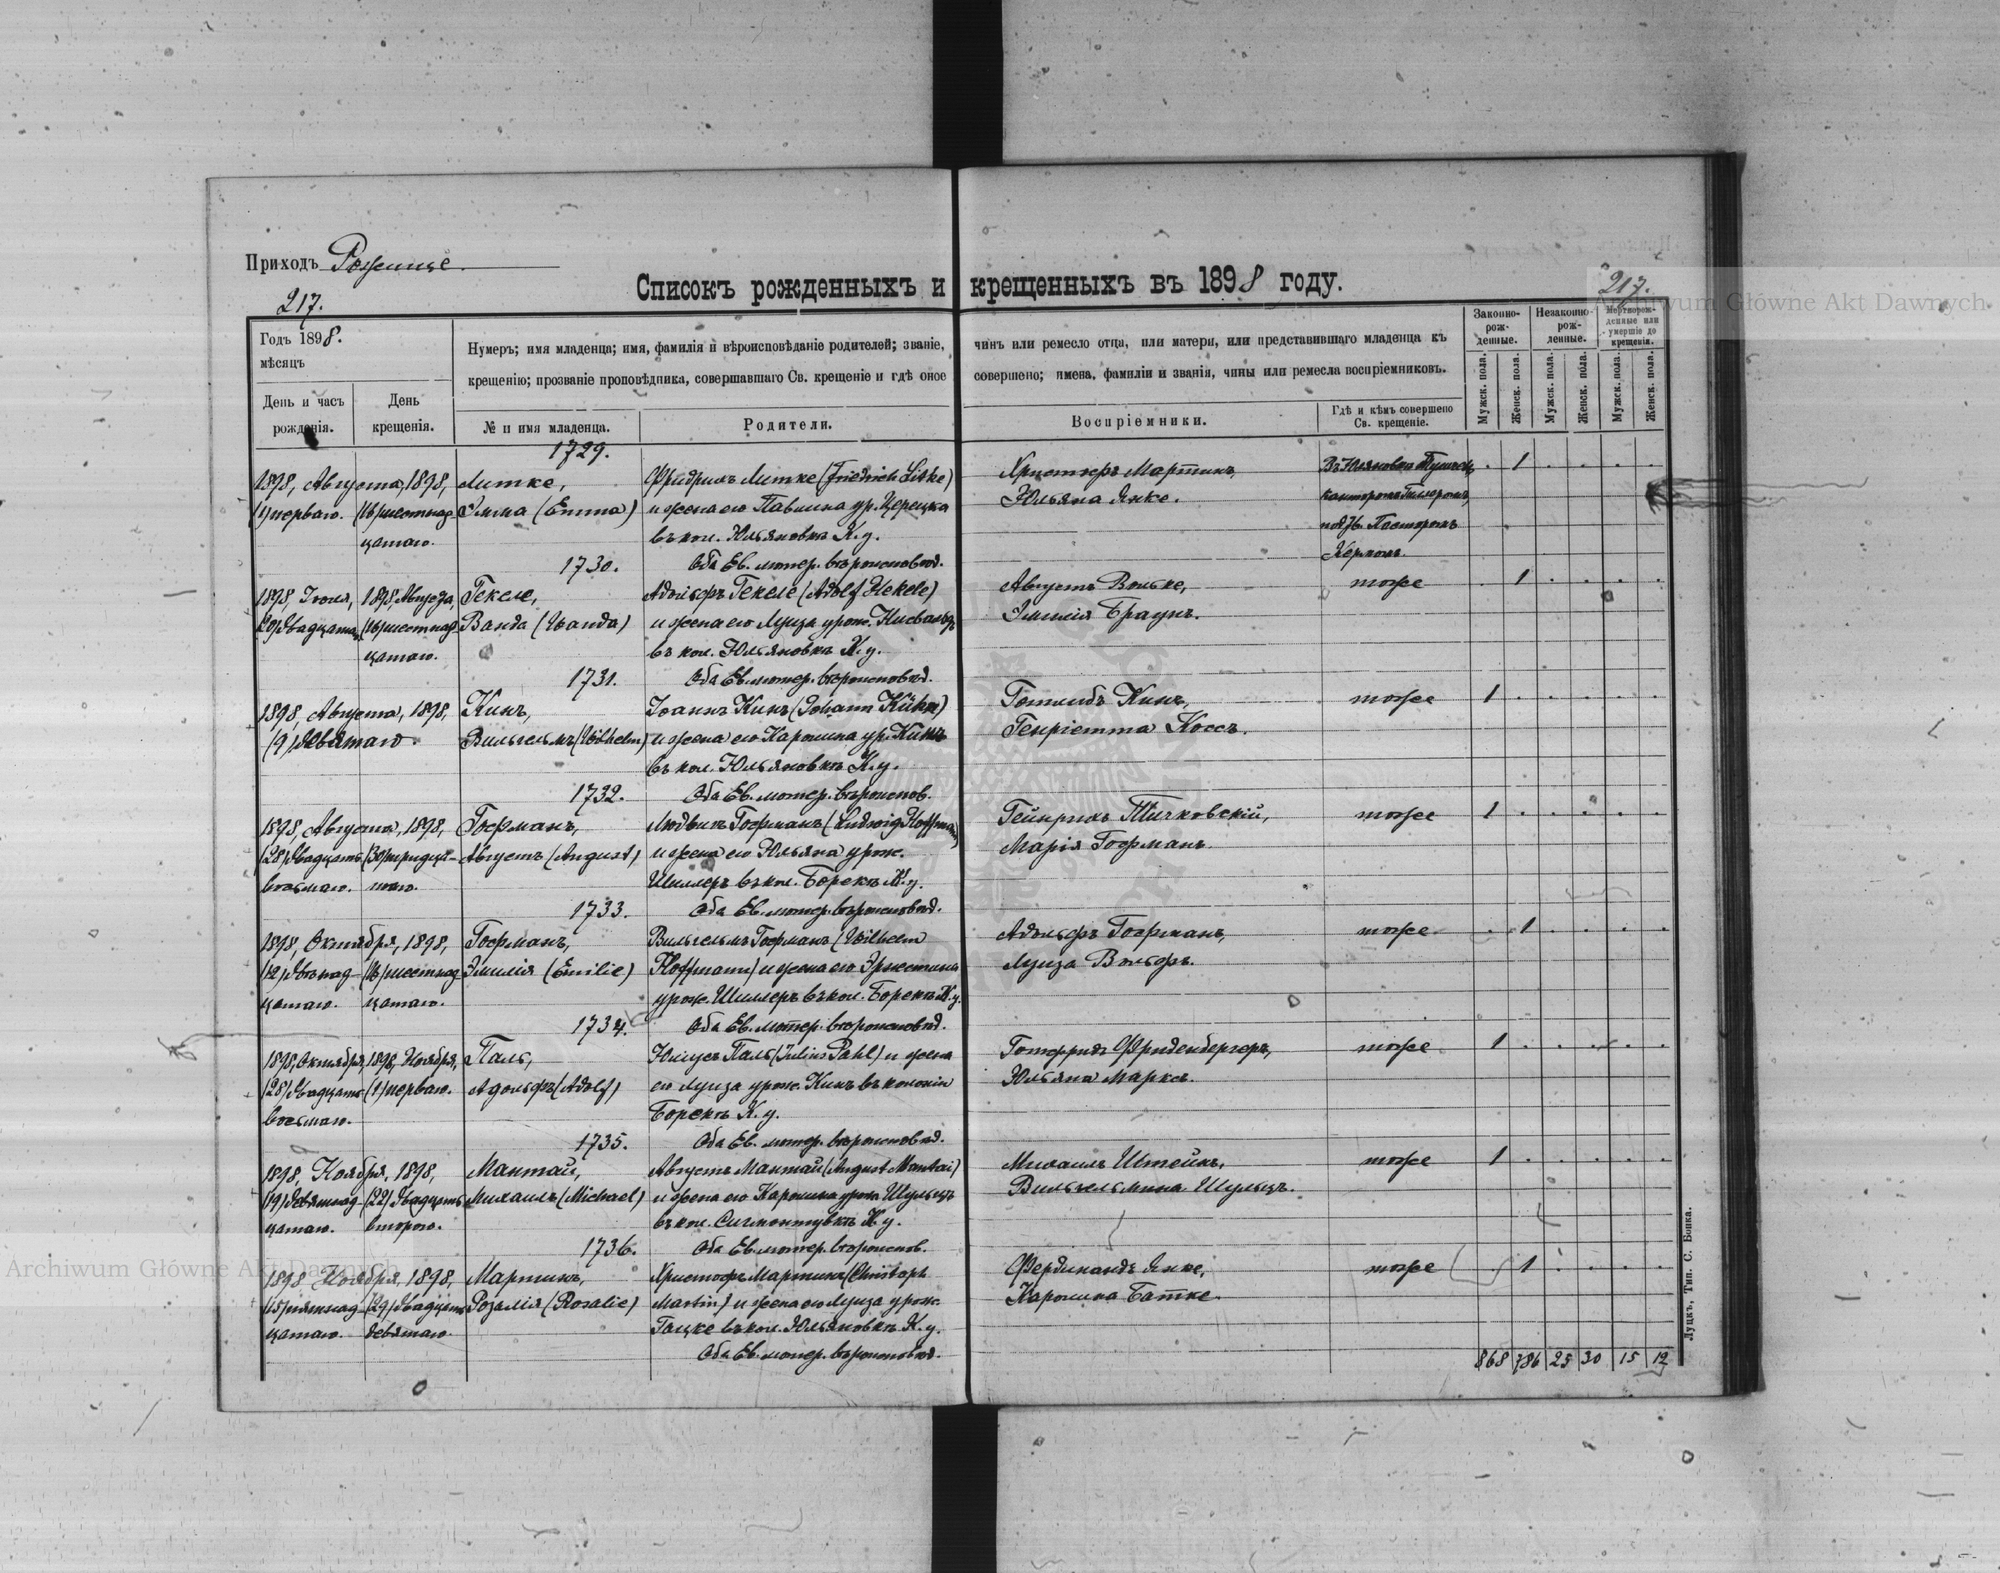 Приходъ Рожище.
217.
Списокъ рожденныхъ и крещенныхъ въ 1898 году.
217.
Archiwum Główne Akt Dawnych
Годъ 1898.
мѣсяцъ
День и часъ
рожденія.
День
крещенія.
Нумеръ; имя младенца; имя, фамилія и вѣроисповѣданіе родителей; званіе, чинъ или ремесло отца, или матери, или представившаго младенца къ
крещенію; прозваніе проповѣдника, совершавшаго Св. крещеніе и гдѣ оное совершено; имена, фамиліи и званія, чины или ремесла воспріемниковъ.
№ и имя младенца.
Родители.
Воспріемники.
Гдѣ и кѣмъ совершено
Св. крещеніе.
Законно-
рож-
денные.
Незаконно-
рож-
денные.
Мертворож-
денные или
умершіе до
крещенія.
Мужск. пола.
Женск. пола.
Мужск. пола.
Женск. пола.
Мужск. пола.
Женск. пола.
1729.
1898, Августа, 1898,
(1) перваго. (16) шестнад-
цатаго.
Литке,
Эмма (Emma)
Фридрихъ Литке (Friedrich Litke)
и жена его Павлина ур. Церецка
въ кол. Юльяновкѣ К. у.
Оба Ев. лютер. вѣроисповѣд.
Христофъ Мартинъ,
Юльяна Янке.
Въ Юльяновкѣ
канторомъ
подтв. Пасторомъ
Керномъ.
. 1 . . . .
1730.
1898, Іюля, 1898, Августа,
(20) двадцатаго (16) шестнад-
цатаго.
Гекеле,
Ванда (Wanda)
Адольфъ Гекеле (Adolf Hekele)
и жена его Луиза урож.
въ кол. Юльяновкѣ К. у.
Оба Ев. лютер. вѣроисповѣд.
Августъ Вольке,
Эмилія Браунъ.
тоже
. 1 . . . .
1731.
1898, Августа, 1898,
(9) девятаго.
Кинъ,
Вильгельмъ (Wilhelm)
Іоаннъ Кинъ (Johann Kühn)
и жена его Каролина ур. Кинъ
въ кол. Юльяновкѣ К. у.
Оба Ев. лютер. вѣроиспов.
Готлибъ Кинъ,
Генріетта Коссъ.
тоже
1 . . . . .
1732.
1898, Августа, 1898,
(28) двадцать (30) тридца-
восьмаго. таго.
Гофманъ,
Августъ (August)
Людвигъ Гофманъ (Ludwig Hoffmann)
и жена его Юльяна урож.
Шиллеръ въ кол. Борекъ К. у.
Оба Ев. лютер. вѣроисповѣд.
Гейнрихъ Тичковскій,
Марія Гофманъ.
тоже
1 . . . . .
1733.
1898, Октября, 1898,
(12) двѣнад- (16) шестнад-
цатаго. цатаго.
Гофманъ,
Эмилія (Emilie)
Вильгельмъ Гофманъ (Wilhelm
Hoffmann) и жена его Эрнестина
урож. Шиллеръ въ кол. Борекъ К. у.
Оба Ев. лютер. вѣроисповѣд.
Адольфъ Гофманъ,
Луиза Вольфъ.
тоже
. 1 . . . .
1734.
1898, Октября, 1898, Ноября,
(28) двадцать (1) перваго.
восьмаго.
Паль,
Адольфъ (Adolf)
Юліусъ Паль (Julius Pahl) и жена
его Луиза урож. Кинъ въ колоніи
Борекъ К. у.
Оба Ев. лютер. вѣроисповѣд.
Готфридъ Фриденбергеръ,
Юльяна Марксъ.
тоже
1 . . . . .
1735.
1898, Ноября, 1898,
(19) девятнад- (22) двадцать
цатаго. втораго.
Мантай,
Михаилъ (Michael)
Августъ Мантай (August Mantai)
и жена его Каролина урож. Шульцъ
въ кол. Сигмонтувкѣ К. у.
Оба Ев. лютер. вѣроиспов.
Михаилъ Штейнъ,
Вильгельмина Шульцъ.
тоже
1 . . . . .
1736.
1898 Ноября, 1898,
(15) пятнад- (29) двадцать
цатаго. девятаго.
Мартинъ,
Розалія (Rosalie)
Христофъ Мартинъ (Christoph
Martin) и жена его Луиза урож.
Гацке въ кол. Юльяновкѣ К. у.
Оба Ев. лютер. вѣроисповѣд.
Фердинандъ Янке,
Каролина Батке.
тоже
. 1 . . . .
868 786 25 30 15 12
Луцкъ, Тип. С. Бонка.
Archiwum Główne Akt Dawnych